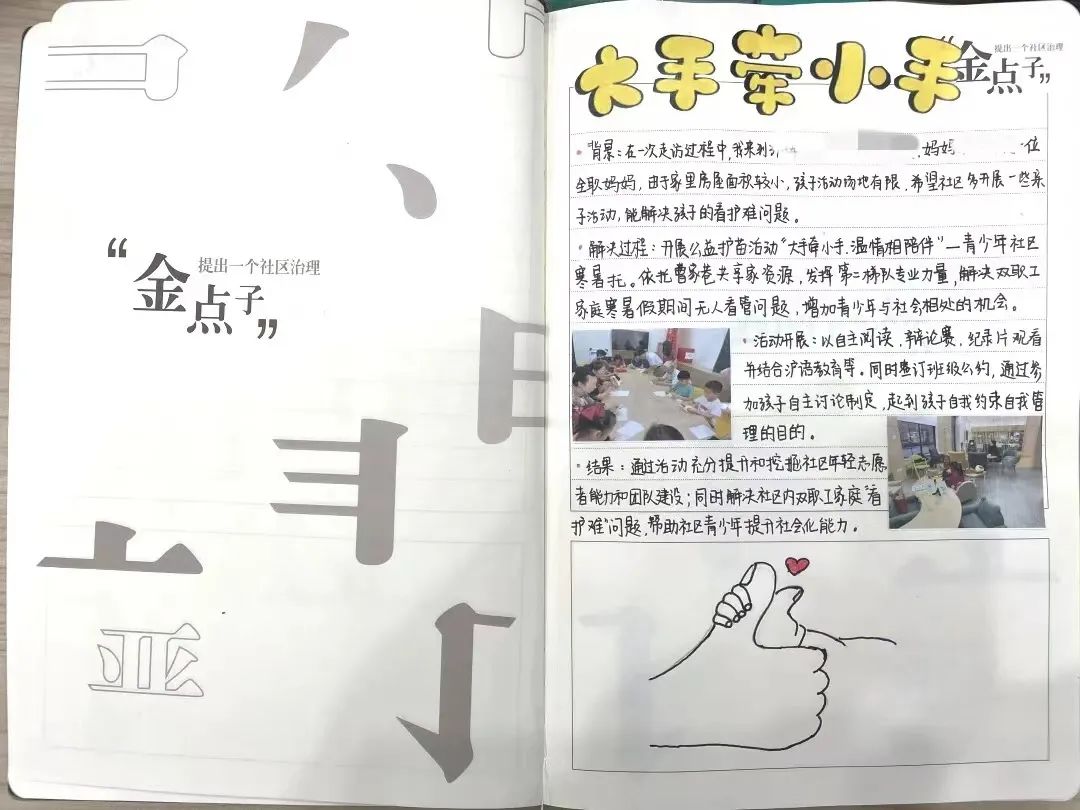 “金点子”
提出一个社区治理
大手牵小手
“金点子”
提出一个社区治理
• 背景：在一次走访过程中，我来到 ，妈妈 位
全职妈妈，由于家里房屋面积较小，孩子活动场地有限，希望社区多开展一些亲
子活动，能解决孩子的看护难问题。
• 解决过程：开展公益护苗活动“大手牵小手 温情相陪伴”—青少年社区
寒暑托。依托曹家巷共享家资源，发挥第二梯队专业力量，解决双职工
家庭寒暑假期间无人看管问题，增加青少年与社会相处的机会。
• 活动开展：以自主阅读，辩论赛，纪录片观看
并结合沪语教育等。同时签订班级公约，通过参
加孩子自主讨论制定，起到孩子自我约束自我管
理的目的。
• 结果：通过活动充分提升和挖掘社区年轻志愿
者能力和团队建设；同时解决社区内双职工家庭“看
护难”问题，帮助社区青少年提升社会化能力。